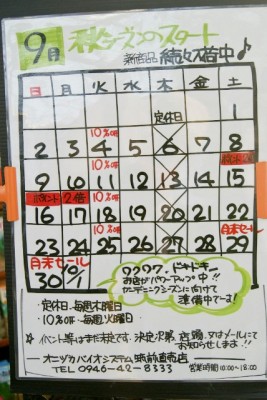 9月 秋ガーデンのスタート
新商品 続々入荷中♪
日 月 火 水 木 金 土
定休日 1
10%off
2 3 4 5 6 7 8
10%off
9 10 11 12 13 14 15
ポイント 2倍 10%off
16 17 18 19 20 21 22
10%off 月末セール
23 24 25 26 27 28 29
月末セール
30 10/1
ワクワク、ドキドキ
お店がパワーアップ中!!
ガーデニングシーズンに向けて
準備中でーす!
・定休日 毎週木曜日
・10%off 毎週火曜日
☆ イベント等はまだ未定です。決定次第、店頭、又はメールにて
お知らせします!!
オーヅカバイオシステム 筑前直売店
TEL 0946-42-8333 営業時間 10:00〜18:00